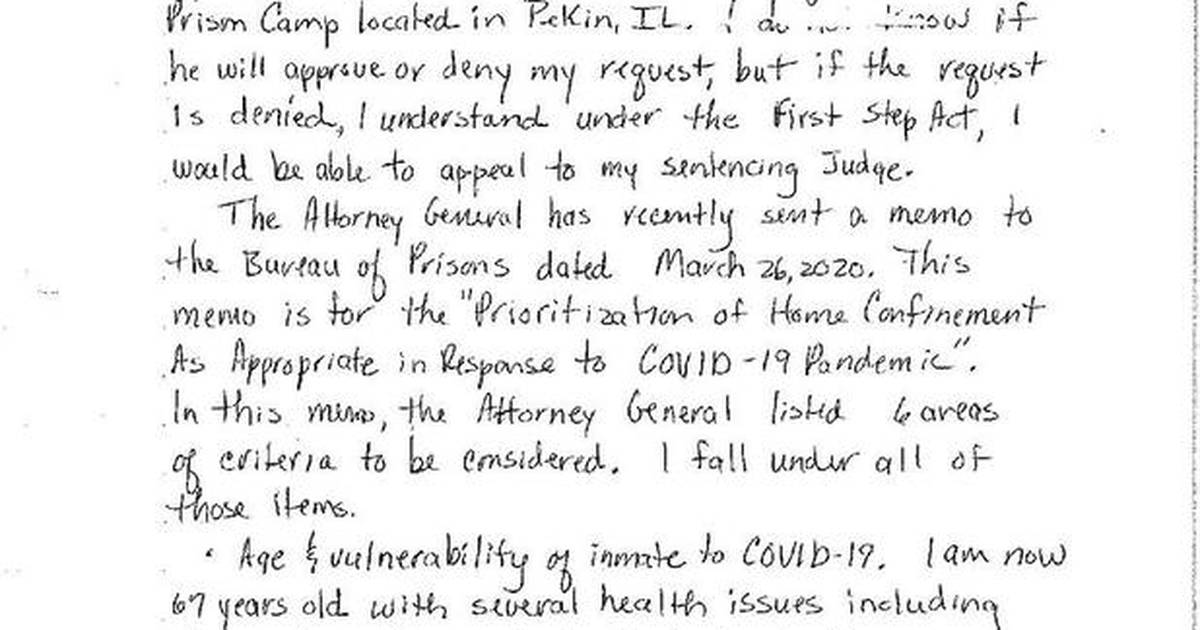 Prison Camp located in Pekin, IL. I do know if
he will approve or deny my request, but if the request
is denied, I understand under the First Step Act, I
would be able to appeal to my sentencing Judge.
The Attorney General has recently sent a memo to
the Bureau of Prisons dated March 26, 2020. This
memo is for the "Prioritization of Home Confinement
As Appropriate in Response to COVID-19 Pandemic".
In this memo, the Attorney General listed 6 areas
of criteria to be considered. I fall under all of
those items.
· Age & vulnerability of inmate to COVID-19. I am now
67 years old with several health issues including